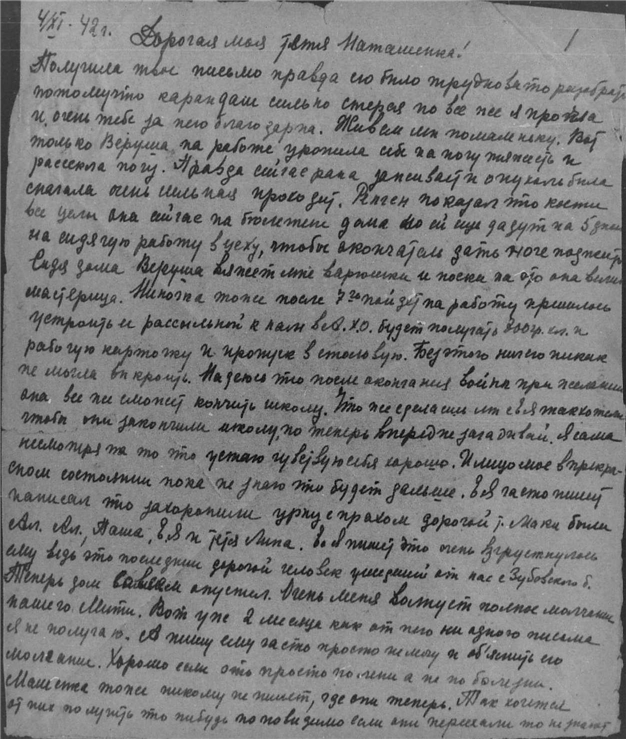 4/XI - 42 г. 1
Дорогая моя тётя Наташенька!
Получила твое письмо правда его было трудновато разобрать
потому что карандаш сильно стерся но все же я прочла
и очень тебе за него благодарна. Живем мы помаленьку. Вот
только Веруша на работе уронила себе на ногу тяжесть и
рассекла ногу. Правда сейчас рана заживает и опухоль была
сначала очень сильная проходит. Рентген показал что кости
все целы она сейчас на бюлетене дома но ей еще дадут на 5 дней
на сидячую работу в цеху, чтобы окончательн дать ноге поджить
Сидя дома Веруша вяжет мне варюшки и носки на это она велик
мастерица. тоже после 7 пойдет на работу пришлось
устроить ее рассыльной к нам в А.Х.О. будет получать 200 р. и
рабочую карточку и пропуск в столовую. Без этого ничего никак
не могла выкроить. Надеюсь что после окончания войны при желании
она все же сможет кончить школу. Что же сделаешь мы с так хотели
чтобы они закончили школу, но теперь вперед не загадывай. Я сама
несмотря на то что устаю чувствую себя хорошо. И лицо мое в прекра-
сном состоянии пока не знаю что будет дальше. часто пишет
написал что захоронили урну с прахом дорогой т. Маки были
Ал. Ал., Паша, и тётя Липа. пишет что очень взгрустнулось
ему ведь это последний дорогой человек ушедший от нас с Зубовского б.
Теперь дом совсем опустел. Очень меня волнует полное молчание
нашего Мити. Вот уже 2 месяца как от него ни одного письма
я не получаю. А пишу ему часто просто не могу и объяснить его
молчание. Хорошо если это просто по лени а не по болезни.
Машенка тоже никому не пишет, где они теперь. Так хочется
от них получить что нибудь но повидимо если они переехали то не знают